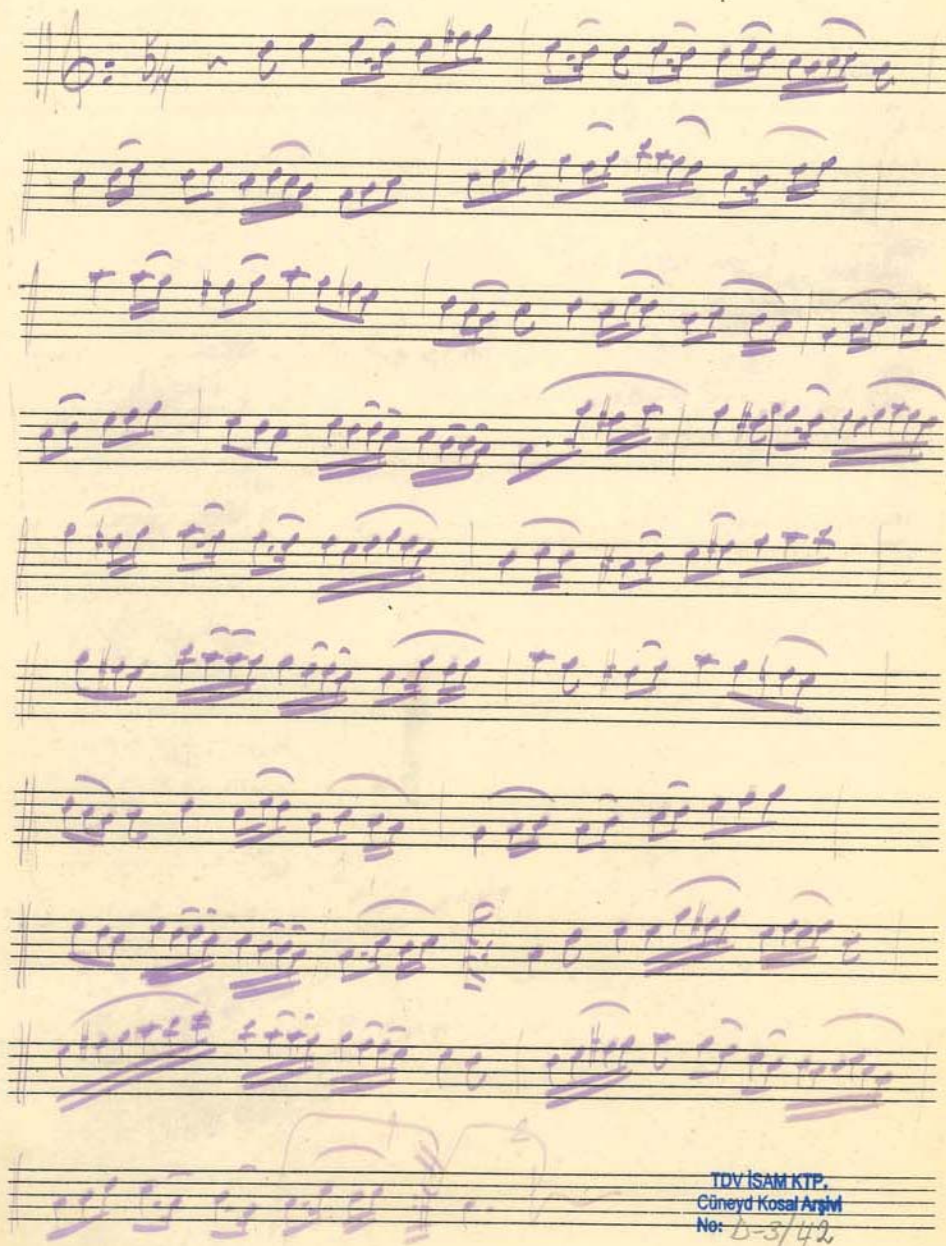 5/4
1 2
TDV İSAM KTP.
Cüneyd Kosal Arşivi
No: D-3/42